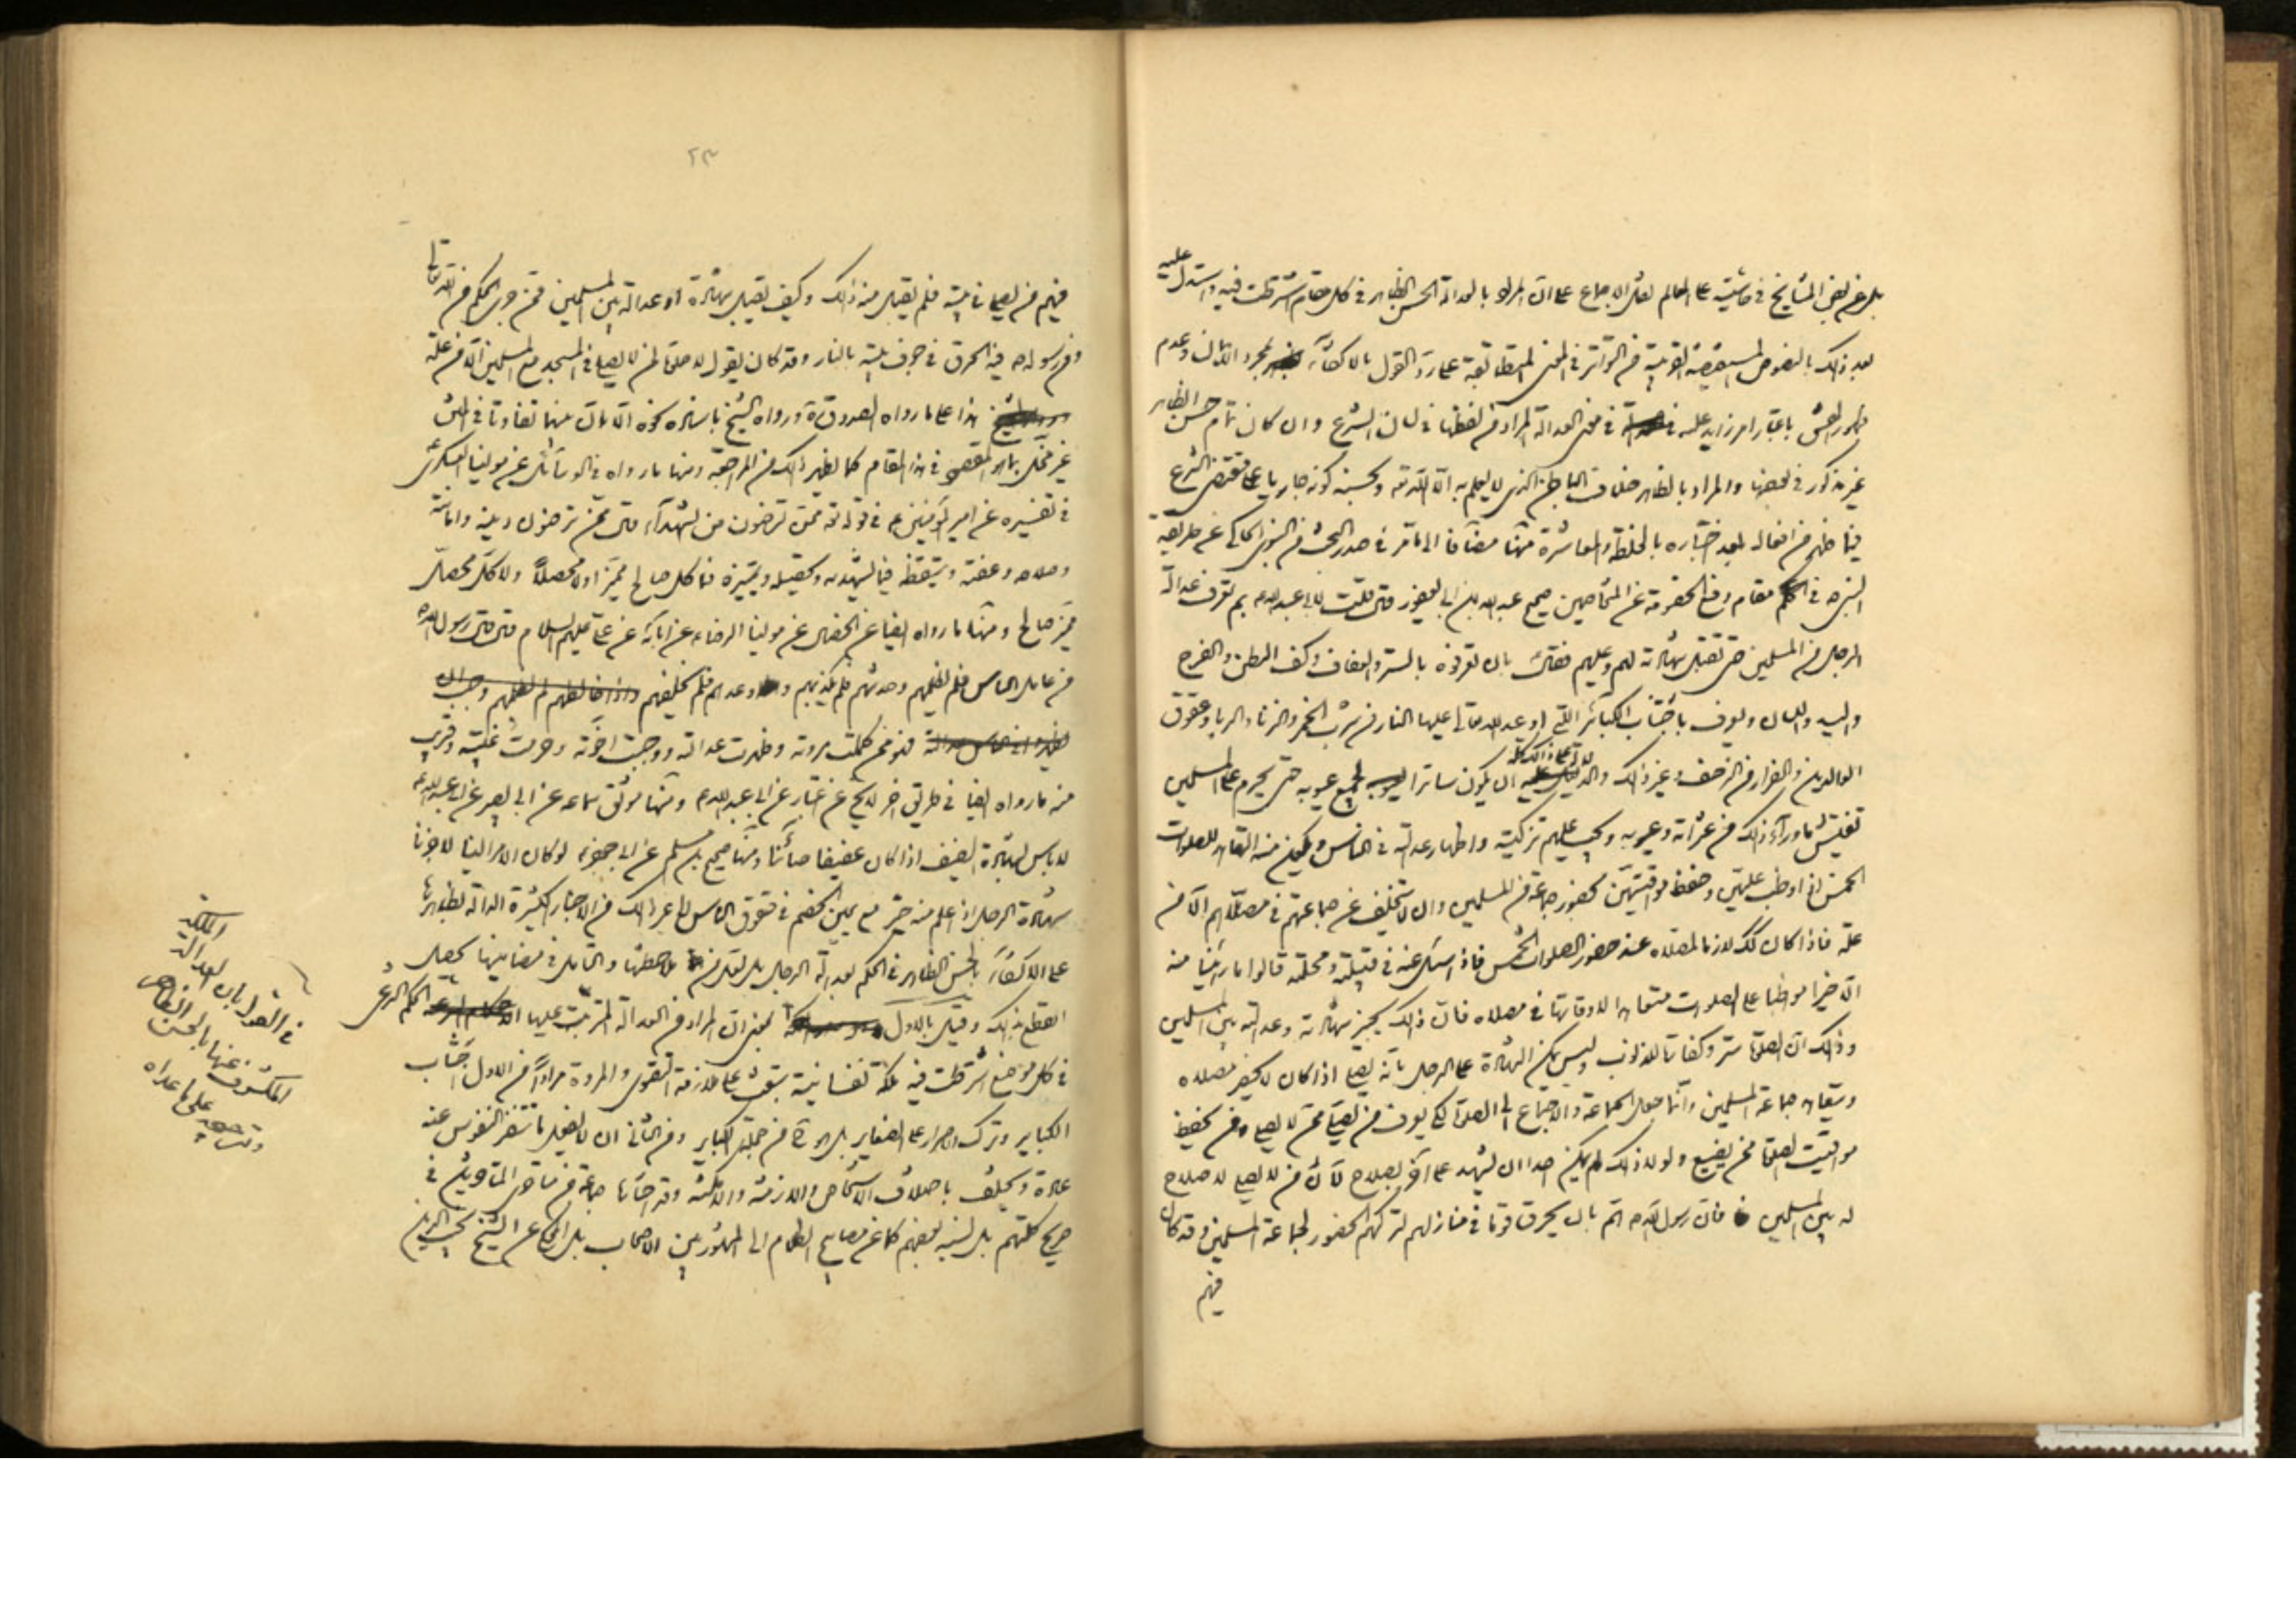 بل عن بعض المشايخ في حاشيته على المعالم نقل الاجماع على ان المراد بالعدالة الحسن الظاهر في كل مقام اشترطت فيه واستدل عليه
بعد ذلك بالنصوص المستفيضة القريبة من التواتر في المعنى المتطابقة على رد القول بالاكتفاء بمجرد الاسلام وعدم
ظهور الفسق باعتبار امر زايد عليه في معنى العدالة المراد من لفظها في لسان الشرع وان كان تمام حسن الظاهر
غير مذكور في بعضها والمراد بالظاهر خلاف الباطن الذي لا يعلم به الا الله تعالى وبحسنه كونه جاريا على مقتضى الشرع
فيما ظهر من افعاله بعد اختباره بالخلطة والمعاشرة منها مضافا الى ما مر في صدر البحث من النبوي الحاكي عن طريقة
النبي ص في الحكم مقام رفع الخصومة عن المتخاصمين صحيح عبد الله بن ابي يعفور قال قلت لابي عبد الله ع بم تعرف عدالة
الرجل من المسلمين حتى تقبل شهادته لهم وعليهم فقال بان تعرفوه بالستر والعفاف وكف البطن والفرج
واليد واللسان ويعرف باجتناب الكبائر التي اوعد الله تعالى عليها النار من شرب الخمر والزنا والربا وعقوق
الوالدين والفرار من الزحف وغير ذلك والدلالة على ذلك كله ان يكون ساترا لجميع عيوبه حتى يحرم على المسلمين
تفتيش ما وراء ذلك من عثراته وعيوبه ويجب عليهم تزكيته واظهار عدالته في الناس ويكون منه التعاهد للصلوات
الخمس اذا واظب عليهن وحفظ مواقيتهن بحضور جماعة من المسلمين وان لا يتخلف عن جماعتهم في مصلاهم الا من
علة فاذا كان كك لازما لمصلاه عند حضور الصلوات الخمس فاذا سئل عنه في قبيلته ومحلته قالوا ما راينا منه
الا خيرا مواظبا على الصلوات متعاهدا لاوقاتها في مصلاه فان ذلك يجيز شهادته وعدالته بين المسلمين
وذلك ان الصلاة ستر وكفارة للذنوب وليس يمكن الشهادة على الرجل بانه يصلي اذا كان لا يحضر مصلاه
ويتعاهد جماعة المسلمين وانما جعل الجماعة والاجتماع الى الصلاة لكي يعرف من يصلي ممن لا يصلي ومن يحفظ
مواقيت الصلاة ممن يضيع ولولا ذلك لم يمكن احدا ان يشهد على آخر بصلاح لان من لا يصلي لا صلاح
له بين المسلمين فان رسول الله ص هم بان يحرق قوما في منازلهم لتركهم الحضور لجماعة المسلمين وقد كان
فيهم
٢٣
فيهم من يصلي في بيته فلم يقبل منه ذلك وكيف يقبل شهادة او عدالة بين المسلمين ممن جرى الحكم من الله تعالى
ومن رسوله ص فيه الحرق في جوف بيته بالنار وقد كان يقول لا صلاة لمن لا يصلي في المسجد مع المسلمين الا من علة
هذا على ما رواه الصدوق ره ورواه الشيخ باسناده نحوه الا ان بينهما تفاوتا في المتن
غير مخل بما هو المقصود في هذا المقام كما يظهر ذلك من المراجعة ومنها ما رواه في الوسائل عن مولينا العسكري ع
في تفسيره عن امير المؤمنين ع في قوله تعالى ممن ترضون من الشهداء قال ممن ترضون دينه وامانته
وصلاحه وعفته وتيقظه فيما يشهد به وتحصيله وتمييزه فما كل صالح مميزا ولا محصلا ولا كل محصل
مميز صالح ومنها ما رواه ايضا عن الخصال عن مولينا الرضا ع عن ابائه عن علي عليهم السلام قال قال رسول الله ص
من عامل الناس فلم يظلمهم وحدثهم فلم يكذبهم ووعدهم فلم يخلفهم
فهو ممن كملت مروته وظهرت عدالته ووجبت اخوته وحرمت غيبته وقريب
منه ما رواه ايضا في طريق اخر عن ابي عبد الله ع ومنها موثق سماعة عن ابي بصير عن ابي عبد الله ع
لا باس بشهادة الضيف اذا كان عفيفا صائنا ومنها صحيح بن مسلم عن ابي جعفر ع لو كان الامر الينا لاجزنا
شهادة الرجل اذا علم منه خير مع يمين الخصم في حقوق الناس الى غير ذلك من الاخبار الكثيرة الدالة بظهورها
على الاكتفاء بالحسن الظاهر في الحكم بعدالة الرجل بل لعل من ملاحظتها والتامل في مضامينها يحصل
القطع بذلك وقيل بالاول بمعنى ان المراد من العدالة المترتبة عليها الحكم الشرعي
في كل موضع اشترطت فيه ملكة نفسانية تبعث على ملازمة التقوى والمروة مرادا من الاول اجتناب
الكباير وترك الاصرار على الصغاير بل هو من جملة الكباير ومن الثاني ان لا يفعل ما تنفر النفوس عنه
عادة ويختلف باختلاف الاشخاص والازمنة والامكنة وقد اختارها جماعة من متاخري المتاخرين في
صريح كلمتهم بل نسبه بعضهم كما عن مصابيح الظلام الى المشهور بين الاصحاب بل المحكي عن الشيخ نجيب الدين
في القول بان العدالة الملكة
المكشوف عنها بالحسن الظاهر
وترجيحه على ما عداه